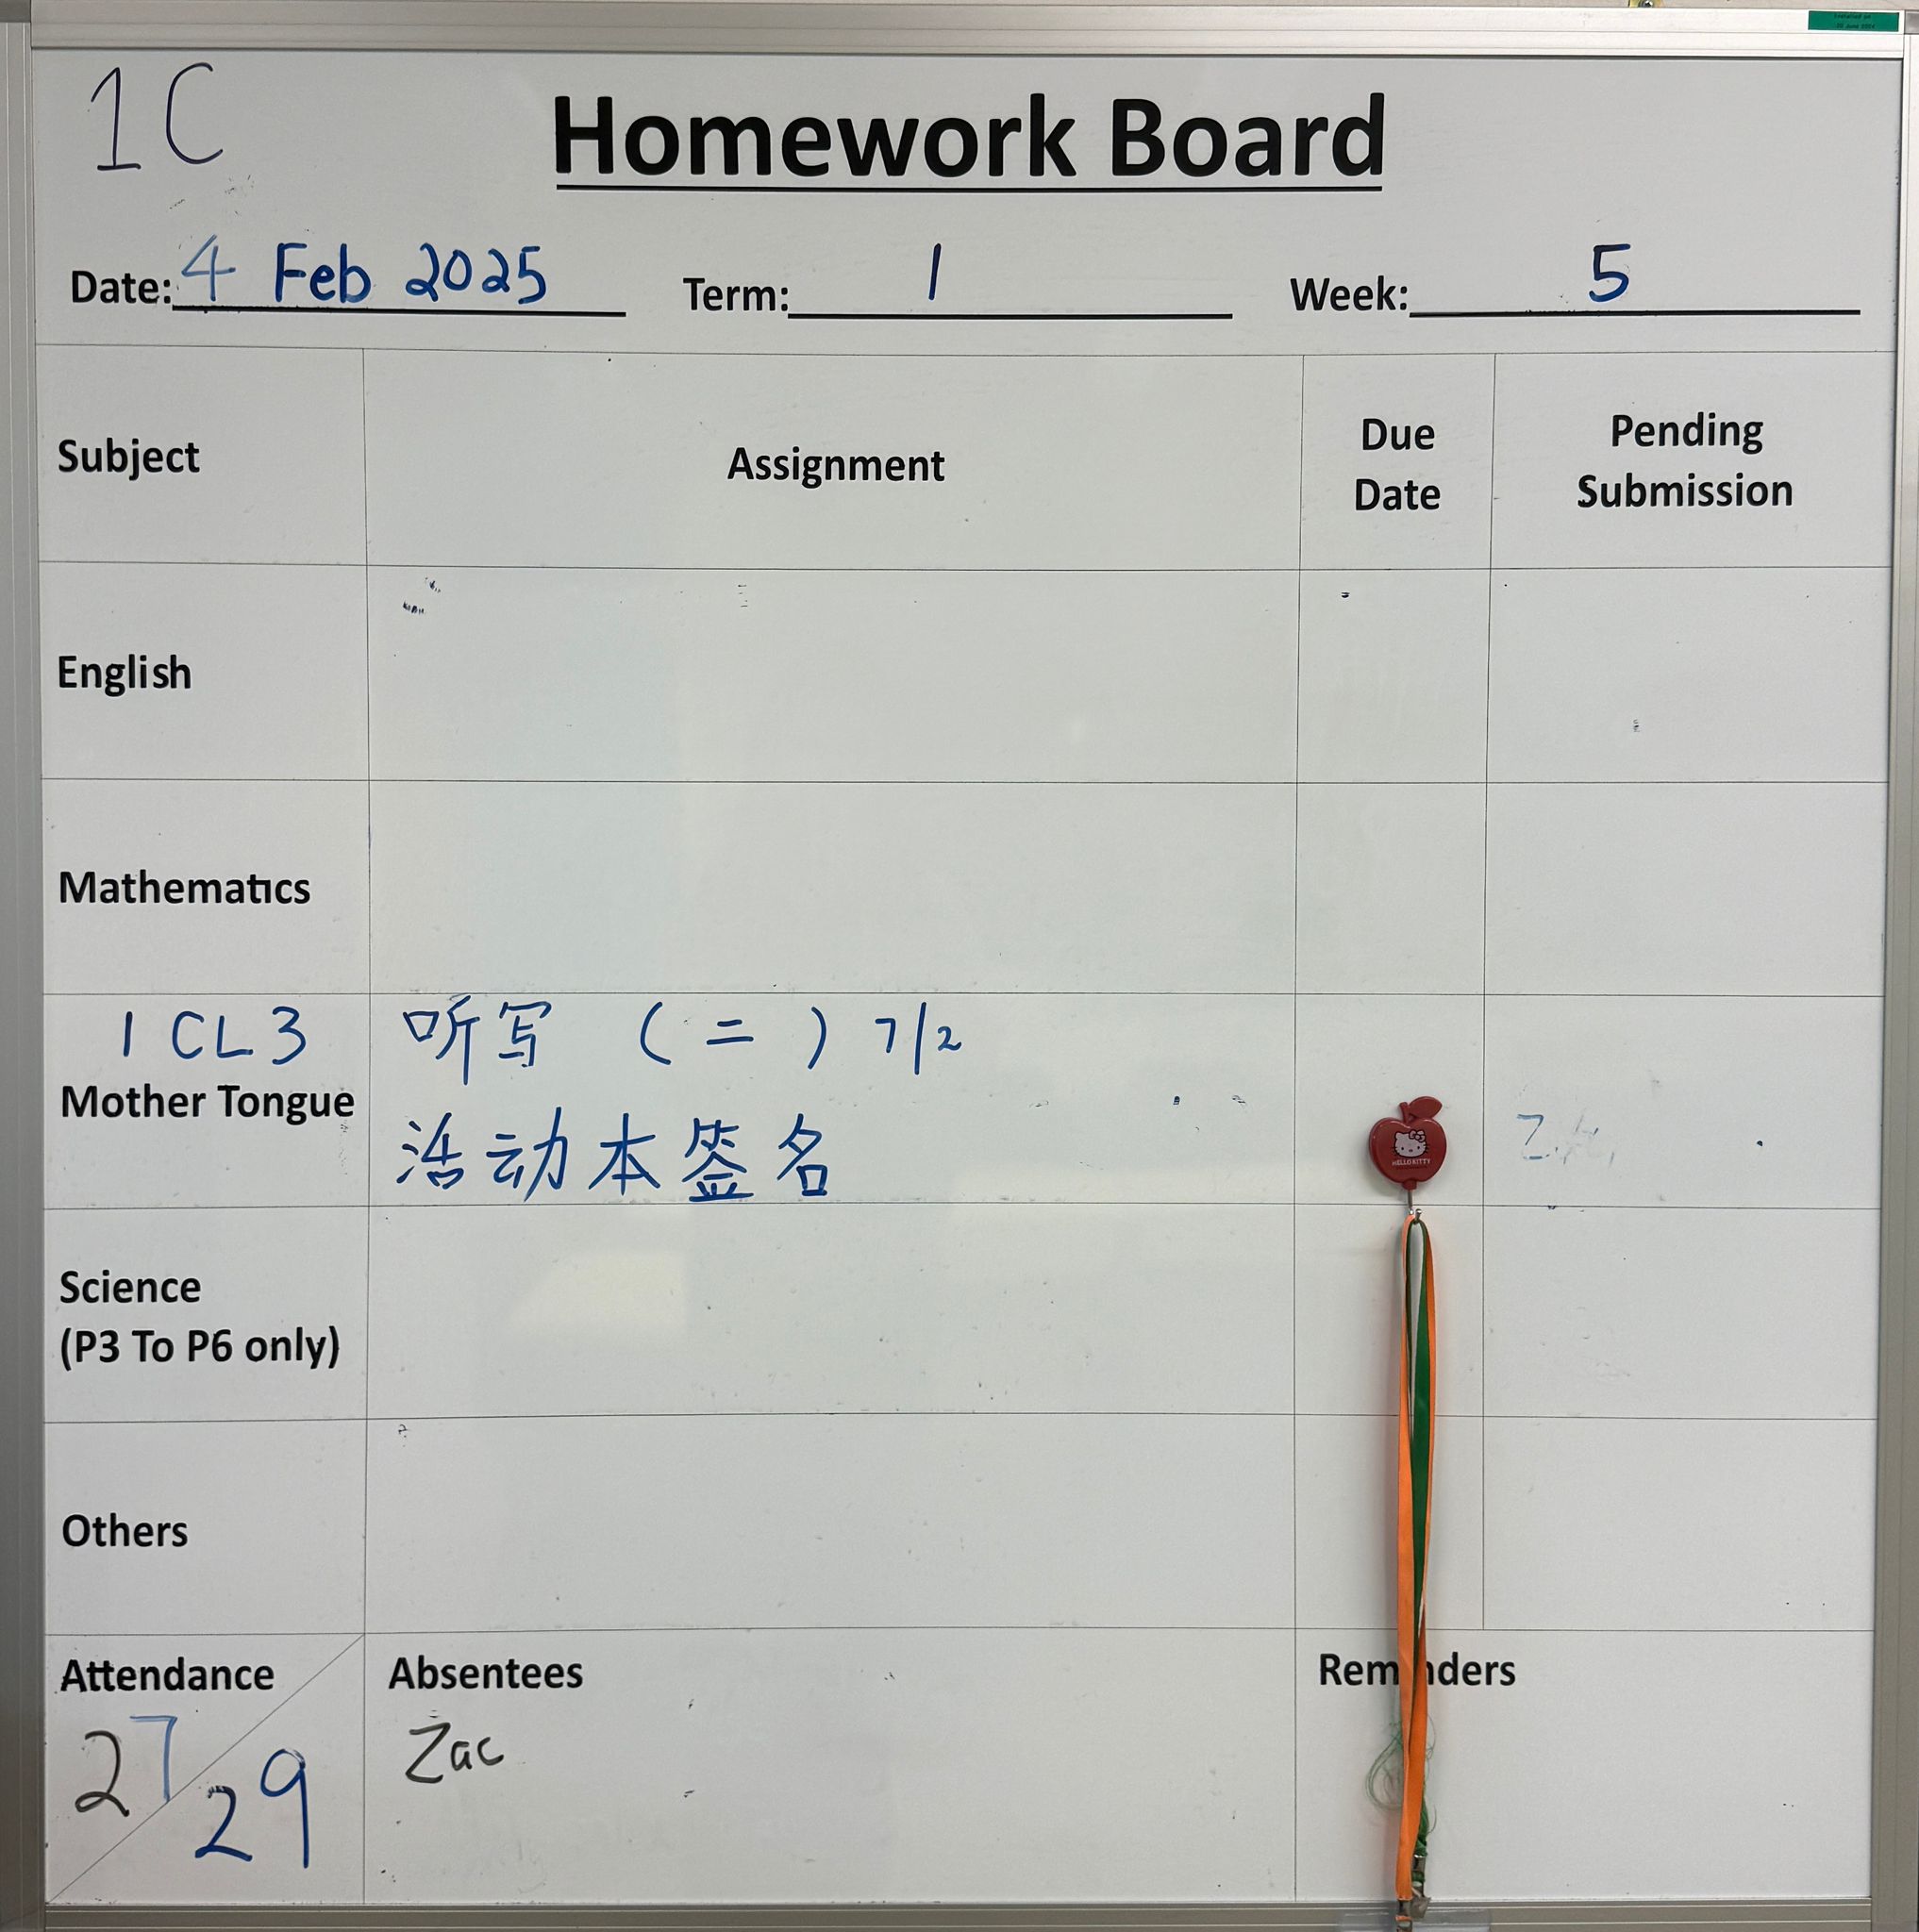 1C
Homework Board
Date: 4 Feb 2025 Term: 1 Week: 5
Subject Assignment Due Date Pending Submission
English
Mathematics
1 CL3 Mother Tongue
听写 (二) 7/2
活动本签名
HELLO KITTY
Science
(P3 To P6 only)
Others
Attendance
27/29
Absentees
Zac
Reminders